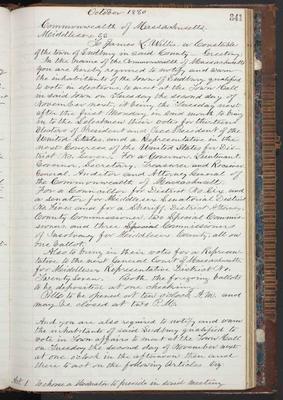 October 1880
341
Commonwealth of Massachusetts.
Middlesex SS.
To James L. Willis a Constable
of the town of Sudbury in said County Greeting.
In the name of the Commonwealth of Massachusetts
you are hereby required to notify and warn
the inhabitants of the town of Sudbury qualified
to vote in elections to meet at the Town Hall
in said town on Tuesday the second day of
November next, it being the Tuesday next
after the first Monday in said month to bring
in to the Selectmen their votes for thirteen
Electors of President and Vice President of the
United States, and a Representative in the
next Congress of the United States for Dis-
trict No. Seven. For a Governor, Lieutenant
Governor, Secretary, Treasurer and Receiver
General, Auditor and Attorney General of
the Commonwealth of Massachusetts.
For a Councillor for District No. and
a Senator for Middlesex Senatorial District
No. and for a Sheriff, District Attorney,
County Commissioner, two Special Commis-
sioners and three Commissioners
of Insolvency for Middlesex County, all on
one ballot.
Also to bring in their votes for a Represen-
tative to the next General Court of Massachusetts
for Middlesex Representative District No.
Twenty Seven. Both the foregoing ballots
to be deposited at one checking.
Polls to be opened at ten o'clock A.M. and
may be closed at P.M.
And you are also required to notify and warn
the inhabitants of said Sudbury qualified to
vote in Town affairs to meet at the Town Hall
on Tuesday the second day of November next
at one o'clock in the afternoon then and
there to act on the following Articles viz
Art. 1 To choose a Moderator to preside in said meeting